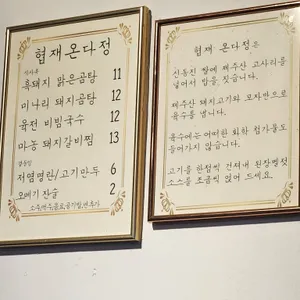 협재온다정
식사류
흑돼지 맑은곰탕 11
미나리 돼지곰탕 12
육전 비빔국수 12
마농 돼지갈비찜 13
곁들임
저염명란/고기만두 6
오메기 잔술 2
소주,맥주,음료,공기밥,면추가
협재 온다정은
신동진 쌀에 제주산 고사리를
넣어서 밥을 짓습니다.
제주산 돼지고기와 모자반으로
육수를 냅니다.
육수에는 어떠한 화학 첨가물도
들어가지 않습니다.
고기를 한점씩 건져내 된장멜젓
소스를 조금씩 얹어 드세요.